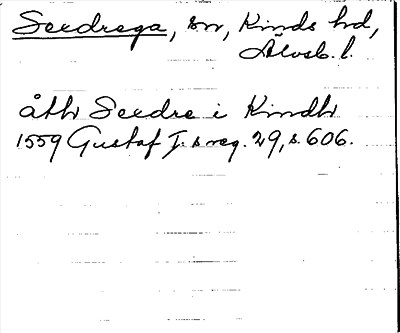 Seedrega, sn, Kinds hd,
Älvsb. l.
åth Seedre i Kindh
1559 Gustaf I:s reg. 29, s. 606.